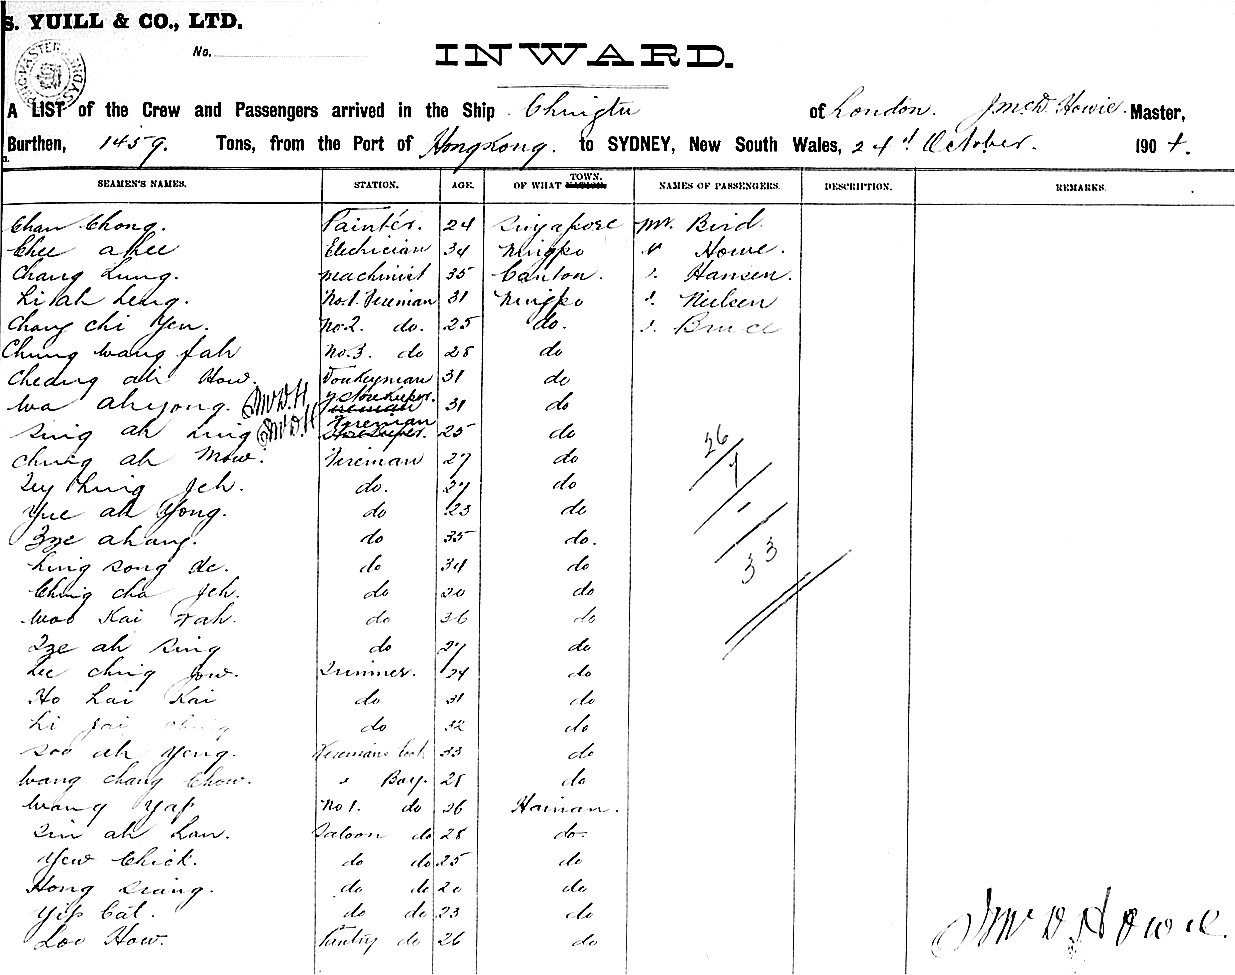 S. YUILL & CO., LTD.
No.
INWARD.
A LIST of the Crew and Passengers arrived in the Ship Chingtu of London. J McD Howie Master,
Burthen, 1459. Tons, from the Port of Hongkong. to SYDNEY, New South Wales, 24th October. 1904.
SEAMEN'S NAMES. STATION. AGE. OF WHAT TOWN. NAMES OF PASSENGERS. DESCRIPTION. REMARKS.
Chan Chong. Painter. 24 Singapore Mr. Bird
Chee ahee Electrician 34 Ningpo " Howe.
Chang Lung. Machinist 35 Canton. " Hansen.
Li ah Leng. No.1. Fireman 31 Ningpo " Nielsen
Chang chi Yen. No.2. do. 25 do. " Bruce
Chung wang fah No.3. do 28 do
Cheang ah How. Donkeyman 31 do
Wa ah yong. JMcD.H & Storekeeper. 31 do
Sing ah Ling JMcD.H Fireman 25 do
Chung ah Mow. Fireman 27 do
Jeh. do. 27 do
Yue ah Yong. do 23 do
Zze ahang. do 35 do.
Ling song de. do 34 do
Ching cha Jeh. do 20 do
Woo Kai Fah. do 36 do
Zze ah Sing do 27 do
Lee ching Jow. Trimmer. 24 do
Ho Lai Kai do 31 do
Li Jai do 32 do
Soo ah Yeng. Firemans Cook 33 do
Wang chang Chow. " Boy. 28 do
Wang Yap No 1. do 26 Hainan.
Sin ah Lan. Saloon do 28 do
Yew Chick. do do 25 do
Hong Siang. do do 20 do
Yip Cat. do do 23 do
Loo How. Pantry do 26 do
26
33
J McD Howie.